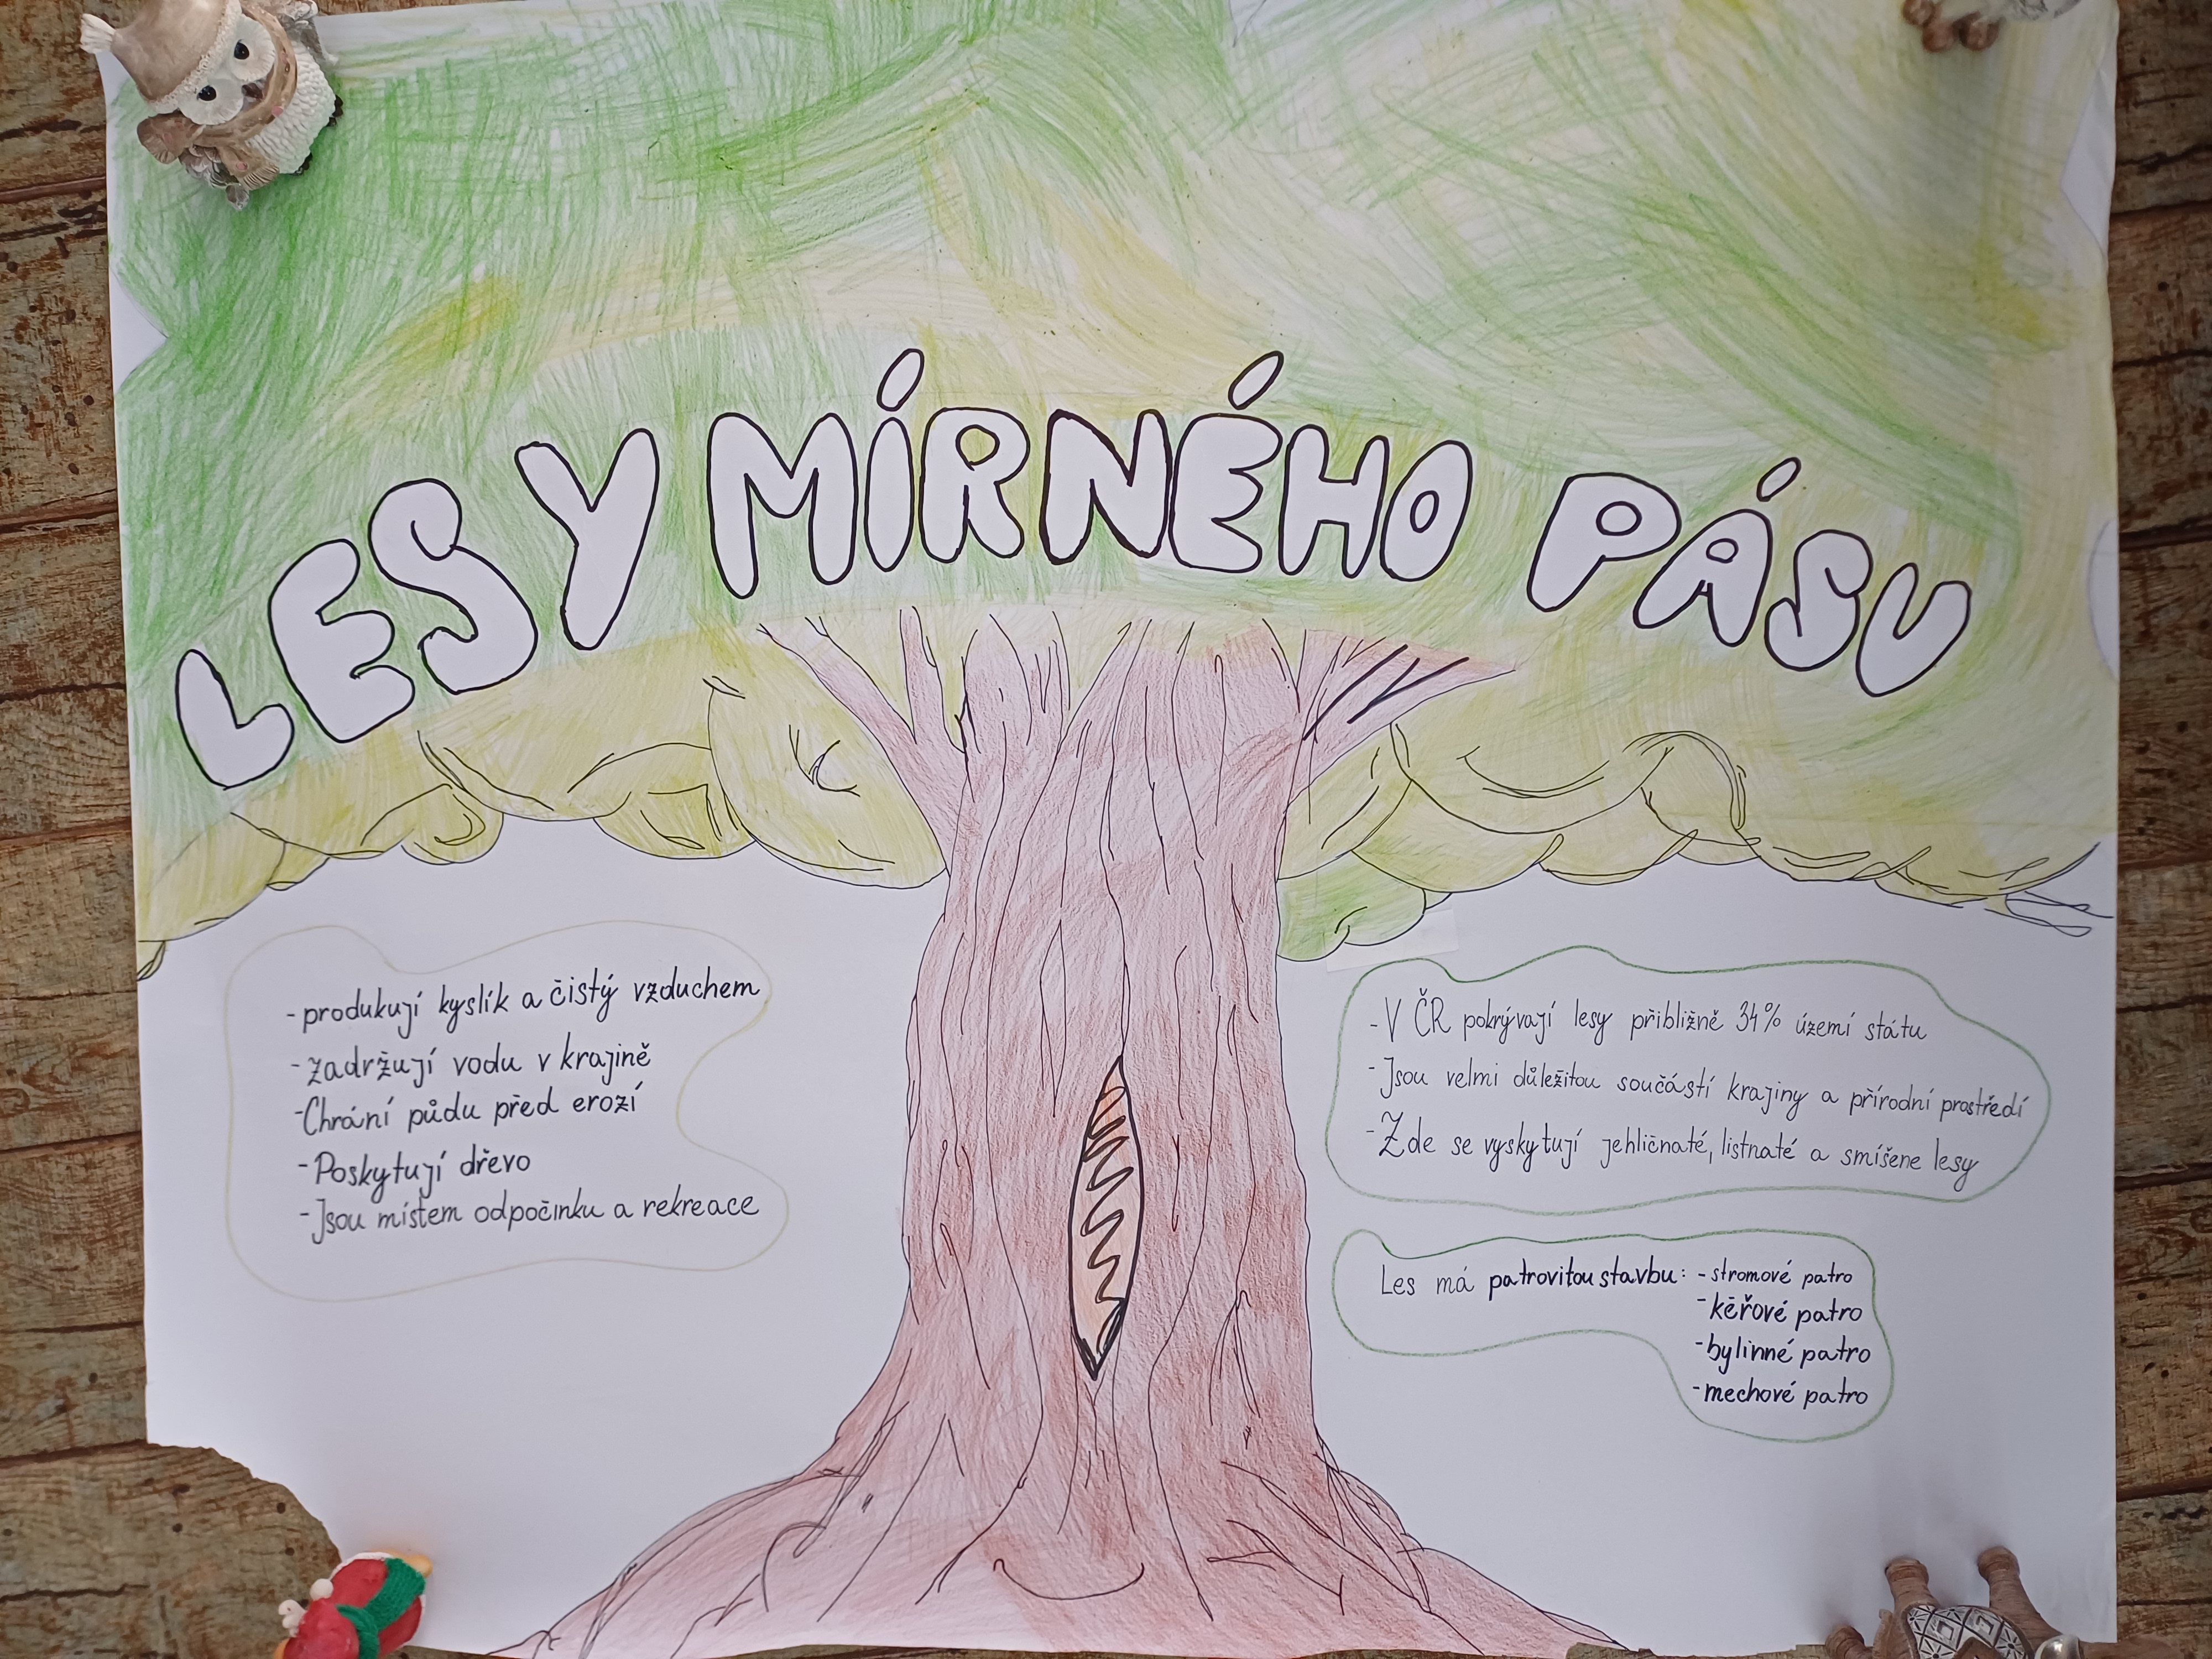 LESY MÍRNÉHO PÁSU
- produkují kyslík a čistý vzduchem
- zadržují vodu v krajině
- Chrání půdu před erozí
- Poskytují dřevo
- Jsou místem odpočinku a rekreace
- V ČR pokrývají lesy přibližně 34% území státu
- Jsou velmi důležitou součástí krajiny a přírodní prostředí
- Zde se vyskytují jehličnaté, listnaté a smíšene lesy
Les má patrovitou stavbu: - stromové patro
- kéřové patro
- bylinné patro
- mechové patro